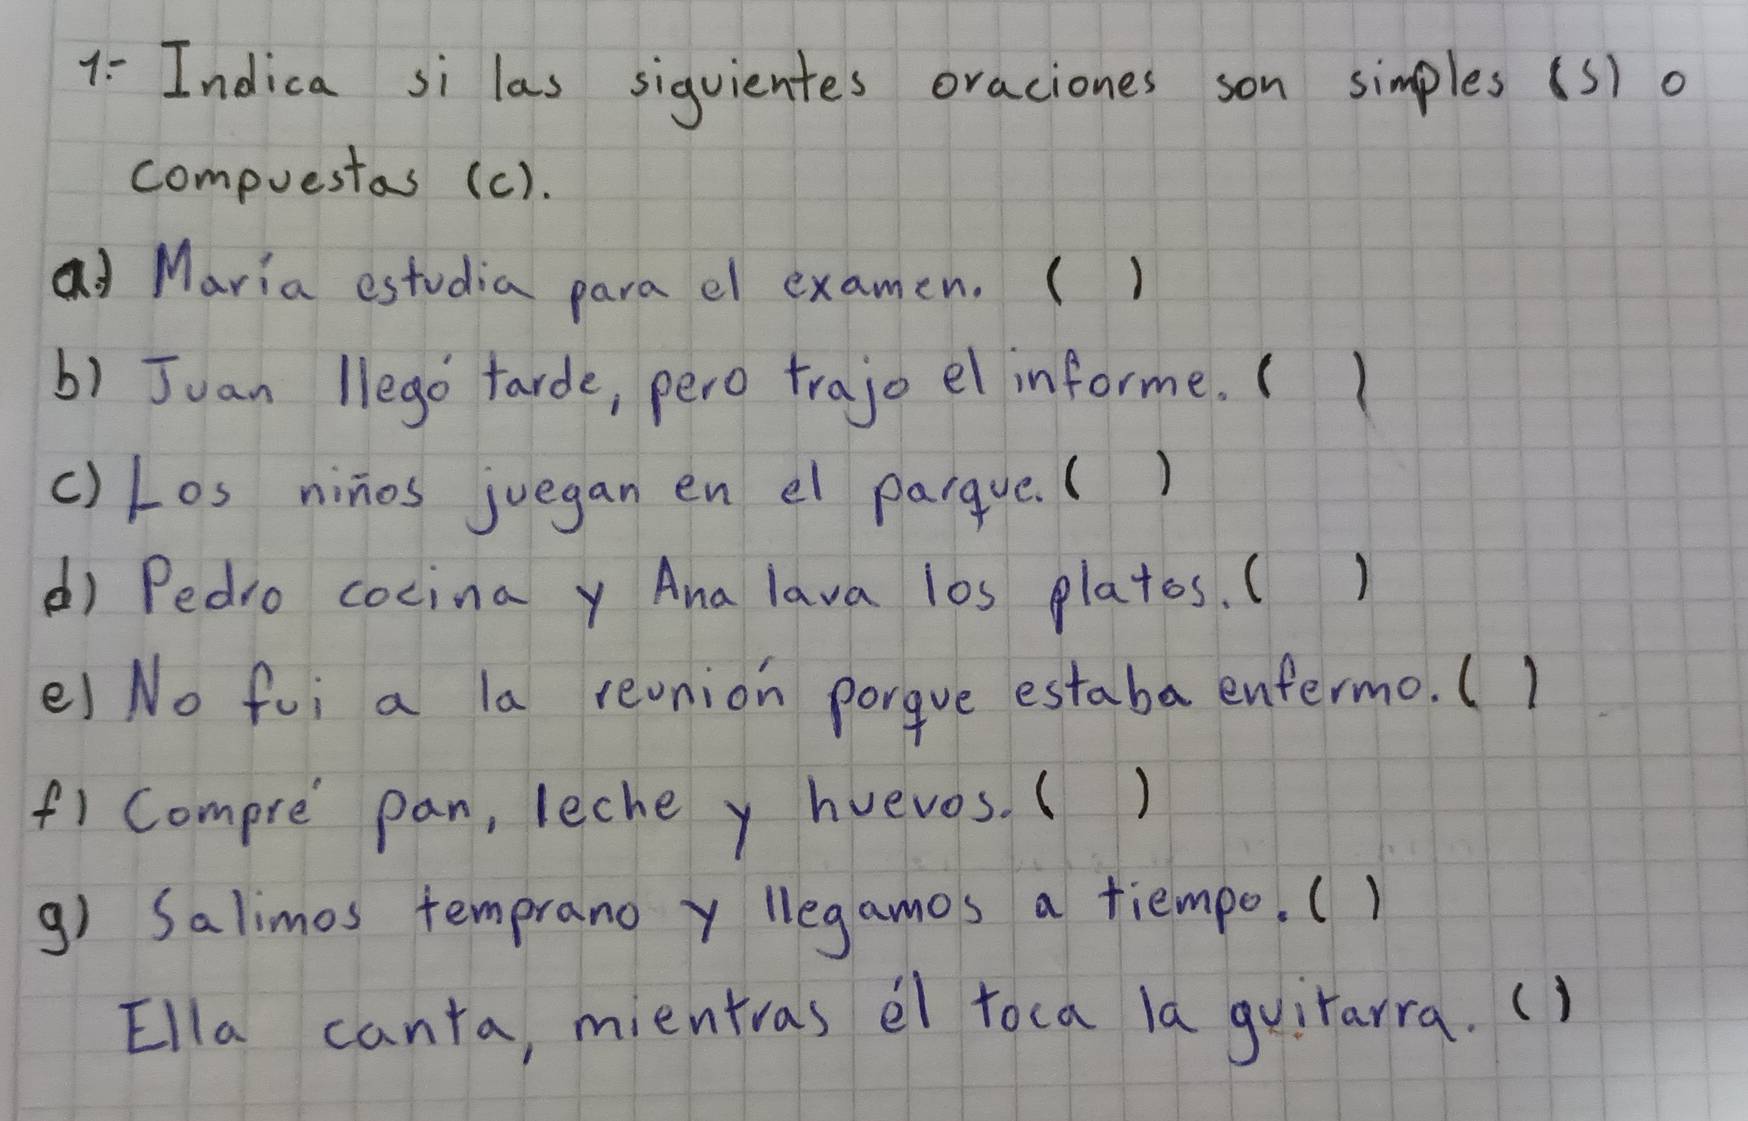 1.- Indica si las siguientes oraciones son simples (s) o
compuestas (c).
a) María estudia para el examen. ( )
b) Juan llegó tarde, pero trajo el informe. ( )
c) Los niños juegan en el parque. ( )
d) Pedro cocina y Ana lava los platos. ( )
e) No fui a la reunión porque estaba enfermo. ( )
f) Compré pan, leche y huevos. ( )
g) Salimos temprano y llegamos a tiempo. ( )
Ella canta, mientras él toca la guitarra. ( )